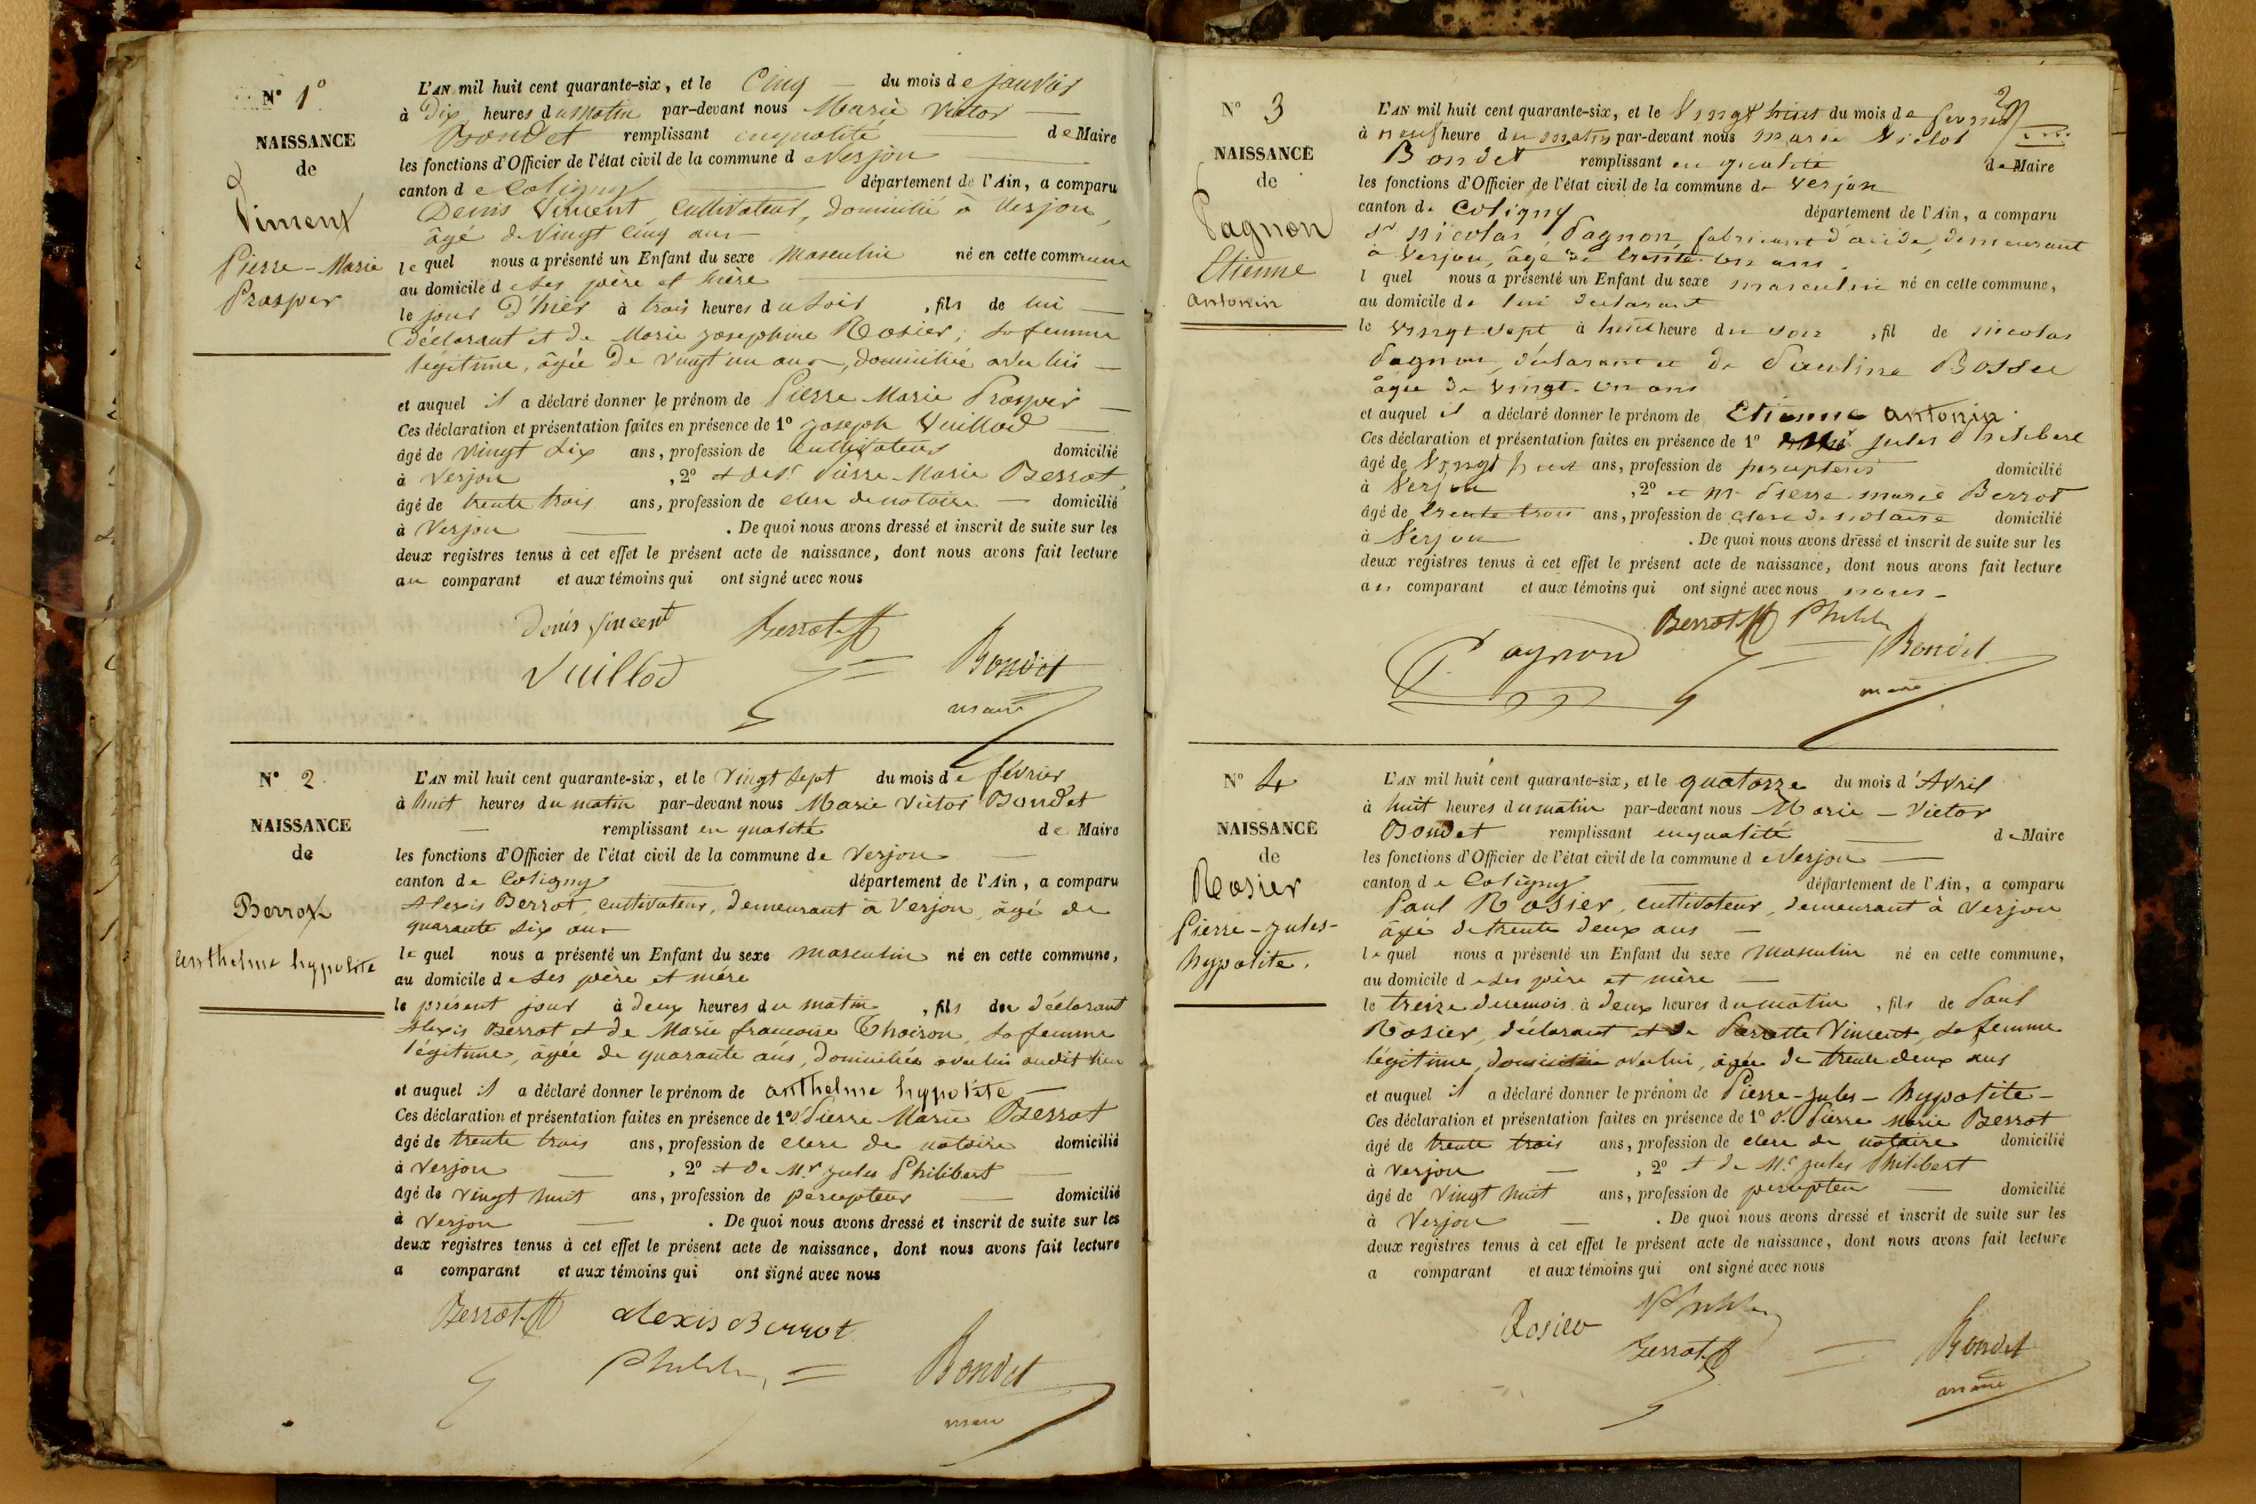 N° 1°
NAISSANCE
de
Vincent
Pierre-Marie
Prosper
L'AN mil huit cent quarante-six, et le Cinq du mois de janvier
à Dix heures du matin par-devant nous Marie Victor
Bondet remplissant en qualité de Maire
les fonctions d'Officier de l'état civil de la commune de Verjon
canton de Coligny département de l'Ain, a comparu
Denis Vincent, Cultivateur, domicilié à Verjon,
âgé de Vingt Cinq ans
lequel nous a présenté un Enfant du sexe Masculin né en cette commune
au domicile de ses père et mère
le jour d'hier à trois heures du soir, fils de lui
déclarant et de Marie Josephine Rosier, sa femme
légitime, âgée de vingt un ans, domiciliée avec lui
et auquel il a déclaré donner le prénom de Pierre Marie Prosper
Ces déclaration et présentation faites en présence de 1° Joseph Vuillod
âgé de vingt six ans, profession de cultivateur domicilié
à Verjon, 2° et de Sr. Pierre-Marie Berrot,
âgé de trente trois ans, profession de clerc de notaire domicilié
à Verjon. De quoi nous avons dressé et inscrit de suite sur les
deux registres tenus à cet effet le présent acte de naissance, dont nous avons fait lecture
au comparant et aux témoins qui ont signé avec nous
Denis Vincent Berrot
Vuillod Bondet
maire
N° 2
NAISSANCE
de
Berrot
anthelme hypolite
L'AN mil huit cent quarante-six, et le vingt sept du mois de février
à huit heures du matin par-devant nous Marie Victor Bondet
remplissant en qualité de Maire
les fonctions d'Officier de l'état civil de la commune de Verjon
canton de Coligny département de l'Ain, a comparu
Alexis Berrot, cultivateur, demeurant à Verjon, âgé de
quarante six ans
lequel nous a présenté un Enfant du sexe masculin né en cette commune,
au domicile de ses père et mère
le présent jour à deux heures du matin, fils du déclarant
Alexis Berrot et de Marie francoise Thoison, sa femme
légitime, âgée de quarante ans, domiciliée avec lui audit lieu
et auquel il a déclaré donner le prénom de anthelme hypolite
Ces déclaration et présentation faites en présence de 1° Sr Pierre Marie Berrot
âgé de trente trois ans, profession de clerc de notaire domicilié
à Verjon, 2° et de Mr. Jules Philibert
âgé de vingt huit ans, profession de percepteur domicilié
à Verjon. De quoi nous avons dressé et inscrit de suite sur les
deux registres tenus à cet effet le présent acte de naissance, dont nous avons fait lecture
a comparant et aux témoins qui ont signé avec nous
Berrot alexis Berrot
Bondet
maire
N° 3
NAISSANCE
de
Pagnon
Etienne
antonin
L'AN mil huit cent quarante-six, et le Vingt huit du mois de fevrier
à neuf heure du matin par-devant nous marie Victor
Bondet remplissant en qualité de Maire
les fonctions d'Officier de l'état civil de la commune de Verjon
canton de Coligny département de l'Ain, a comparu
Sr nicolas Pagnon, fabricant d'acide, demeurant
à Verjon, âgé de trente un ans.
l quel nous a présenté un Enfant du sexe masculin né en cette commune,
au domicile de lui déclarant
le vingt sept à huit heure du soir, fil de nicolas
Pagnon, déclarant et de Pauline Bosse
âgée de vingt un ans
et auquel il a déclaré donner le prénom de Etienne antonin.
Ces déclaration et présentation faites en présence de 1° Jules Philibert
âgé de vingt huit ans, profession de percepteur domicilié
à Verjon, 2° et Mr Pierre marie Berrod
âgé de trente trois ans, profession de clerc de notaire domicilié
à Verjon. De quoi nous avons dressé et inscrit de suite sur les
deux registres tenus à cet effet le présent acte de naissance, dont nous avons fait lecture
au comparant et aux témoins qui ont signé avec nous nous
Berrot
Pagnon Bondet
maire
N° 4
NAISSANCE
de
Rosier
Pierre-Jules-
hypolite.
L'AN mil huit cent quarante-six, et le quatorze du mois d'Avril
à huit heures du matin par-devant nous Marie-Victor
Bondet remplissant en qualité de Maire
les fonctions d'Officier de l'état civil de la commune de Verjon
canton de Coligny département de l'Ain, a comparu
Paul Rosier, cultivateur, demeurant à Verjon
âgé de trente deux ans
lequel nous a présenté un Enfant du sexe masculin né en cette commune,
au domicile de ses père et mère
le treize du mois à deux heures du matin, fils de Paul
Rosier, déclarant et de Vincent, sa femme
légitime, domiciliée avec lui, âgée de trente deux ans
et auquel il a déclaré donner le prénom de Pierre-Jules-hypolite-
Ces déclaration et présentation faites en présence de 1° S. Pierre Marie Berrot
âgé de trente trois ans, profession de clerc de notaire domicilié
à Verjon, 2° et de Mr. Jules Philibert
âgé de vingt huit ans, profession de percepteur domicilié
à Verjon. De quoi nous avons dressé et inscrit de suite sur les
deux registres tenus à cet effet le présent acte de naissance, dont nous avons fait lecture
a comparant et aux témoins qui ont signé avec nous
Rosier
Berrot Bondet
maire